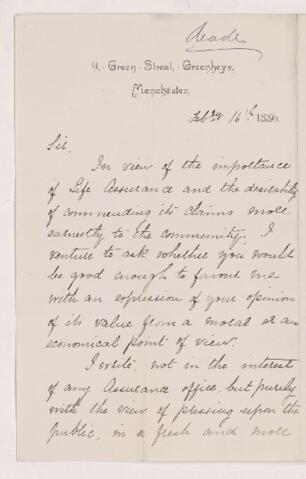 Reade
9, Green Street, Greenheys,
Manchester,
Feby 16th 1886
Sir,
In view of the importance
of Life Assurance and the desirability
of commending its claims more
earnestly to the community. I
venture to ask whether you would
be good enough to favour me
with an expression of your opinion
of its value from a moral or an
economical point of view.
I write, not in the interest
of any Assurance office, but purely
with the view of pressing upon the
public, in a fresh and more